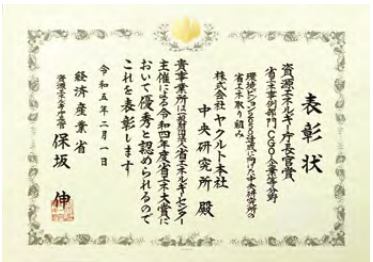 表彰状
資源エネルギー庁長官賞
省エネ事例部門 CGO・企業等分野
環境ビジョン2050達成に向けた中央研究所の
省エネ取り組み
株式会社ヤクルト本社
中央研究所 殿
貴事業所は一般財団法人省エネルギーセンター
主催による令和四年度省エネ大賞に
おいて優秀と認められるので
これを表彰します
令和五年二月一日
経済産業省
資源エネルギー庁長官 保坂 伸